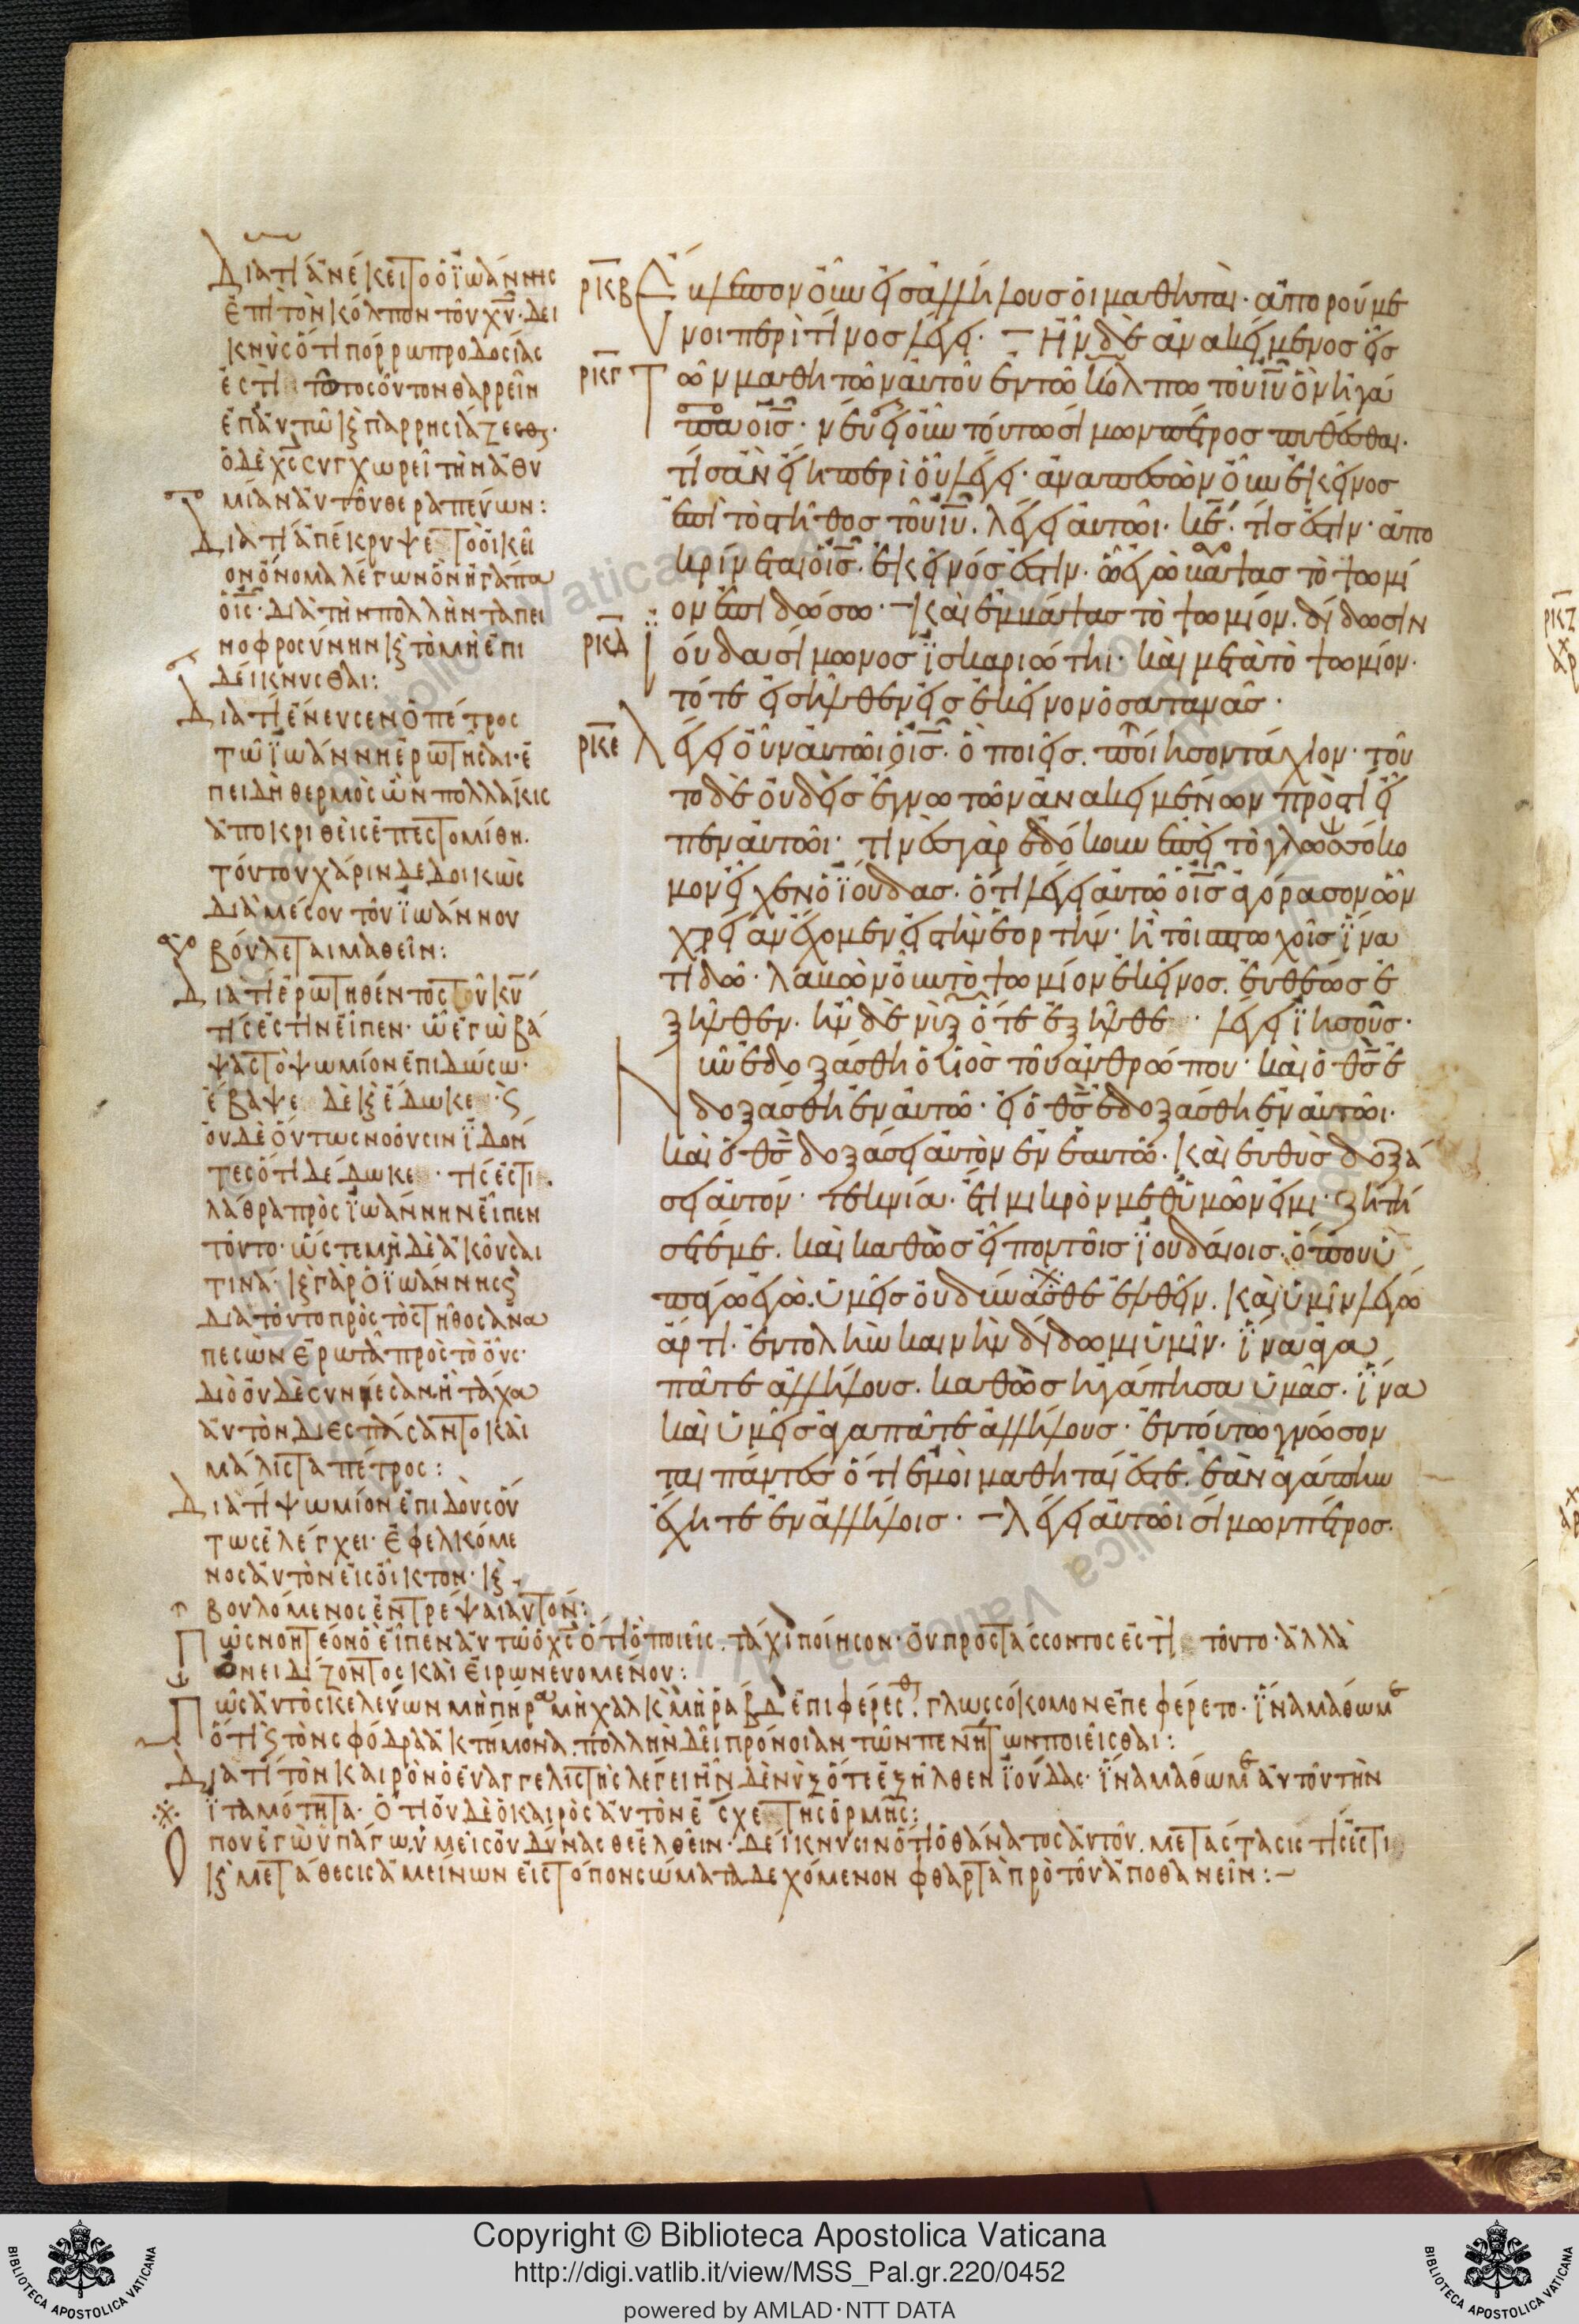 Διατί ἀνέκειτο ὁ ἰωάννης
ἐπὶ τὸν κόλπον τοῦ χυ̅· δει
κνὺς ὅτι πόρρω προδοσίας
ἐστὶ τοῦτος ὄντον θαρρεῖν
ἐπ' αὐτῶ κ παρρησιάζεσθ·
ὁ δὲ χς̅ συγχωρεῖ τὴν ἀθυ
μίαν αὐτοῦ θεραπεύων:
Διατί ἀπέκρυψε τὸ οἰκεῖ
ον ὄνομα λέγων ὃν ἠγάπα
ὁ ις̅· διὰ τὴν πολλὴν ταπει
νοφροσύνην κ τὸ μὴ ἐπι
δείκνυσθαι:
Διατί ἔνευσεν ὁ πέτρος
τῶ ἰωάννη ἐρωτῆσαι· ἐ
πειδὴ θερμὸς ὢν πολλάκις
ἀποκριθεὶς ἐπεστομίθη·
τούτου χάριν δεδοικὼς
διὰ μέσου τοῦ ἰωάννου
βούλεται μαθεῖν:
Διατί ἐρωτηθέντος τοῦ κυ̅
τίς ἐστιν εἶπεν· ὧ ἐγὼ βά
ψας τὸ ψωμίον ἐπιδώσω·
ἔβαψε δὲ κ ἔδωκε· ς
οὐδὲ οὕτως νοοῦσιν ἰδόν
τες ὅτι δέδωκε· τίς ἐστι·
λάθρα πρὸς ἰωάννην εἶπεν
τοῦτο· ὥστε μὴδὲ ἀκοῦσαι
τινά· κ γὰρ ὁ ἰωάννης ς
διατοῦτο πρὸς τὸ στῆθος ἀνα
πεσὼν ἐρωτᾶ πρὸς τὸ οὖς·
διὸ οὐδὲ συνίεσαν· ἢ τάχα
αὐτὸν διεσπάσαντο καὶ
μάλιστα πέτρος:
Διατί ψωμίον ἐπιδοὺς οὕ
τως ἐλέγχει· ἐφελκόμε
νος αὐτὸν εἰς οἶκτον· κ
βουλόμενος ἐντρέψαι αὐτόν:
ρκβ Ἔβλεπον οὖν εἰς ἀλλήλους οἱ μαθηταί· ἀπορούμε
νοι περὶ τίνος λέγει· Ἦν δὲ ἀνακείμενος εἷς
ρκγ τῶν μαθητῶν αὐτοῦ ἐν τῶ κόλπω τοῦ ιυ̅ ὃν ἠγά
πα ὁ ις̅· νεύει οὖν τούτω σίμων πέτρος πυθέσθαι·
τίς ἂν εἴη περὶ οὗ λέγει· ἀναπεσὼν οὖν ἐκεῖνος
ἐπὶ τὸ στῆθος τοῦ ιυ̅· λέγει αὐτῶι· κε̅· τίς ἐστιν· ἀπο
κρίνεται ὁ ις̅· ἐκεῖνός ἐστιν· ὧ ἐγὼ βάψας τὸ ψωμί
ον ἐπιδώσω· Καὶ ἐμβάψας τὸ ψωμίον· δίδωσιν
ρκδ ἰούδα σίμωνος ἰσκαριώτηι· καὶ μετὰ τὸ ψωμίον·
τότε εἰσῆλθεν εἰς ἐκεῖνον ὁ σατανᾶς·
ρκε λέγει οὖν αὐτῶι ὁ ις̅· ὃ ποιεῖς· ποίησον τάχιον· τοῦ
το δὲ οὐδεὶς ἔγνω τῶν ἀνακειμένων πρὸς τί εἶ
πεν αὐτῶι· τινὲς γὰρ ἐδόκουν ἐπεὶ τὸ γλωσσόκο
μον εἶχεν ὁ ἰούδας· ὅτι λέγει αὐτῶ ὁ ις̅ ἀγόρασον ὧν
χρείαν ἔχομεν εἰς τὴν ἑορτήν· ἢ τοῖς πτωχοῖς ἵνα
τι δῶ· λαβὼν οὖν τὸ ψωμίον ἐκεῖνος· εὐθέως ἐ
ξῆλθεν· ἦν δὲ νὺξ ὅτε ἐξῆλθε· λέγει ἰησοῦς·
Νῦν ἐδοξάσθη ὁ υἱὸς τοῦ ἀνθρώπου· καὶ ὁ θς̅ ἐ
δοξάσθη ἐν αὐτῶ· εἰ ὁ θς̅ ἐδοξάσθη ἐν αὐτῶι·
καὶ ὁ θς̅ δοξάσει αὐτὸν ἐν ἑαυτῶ· Καὶ εὐθὺς δοξά
σει αὐτόν· τεκνία· ἔτι μικρὸν μεθ' ὑμῶν εἰμι· ζητή
σετέ με· καὶ καθὼς εἶπον τοῖς ἰουδαίοις· ὅπου ὑ
πάγω ἐγὼ· ὑμεῖς οὐ δύνασθε ἐλθεῖν· Καὶ ὑμῖν λέγω
ἄρτι· ἐντολὴν καινὴν δίδωμι ὑμῖν· ἵνα ἀγα
πᾶτε ἀλλήλους· καθὼς ἠγάπησα ὑμᾶς· ἵνα
καὶ ὑμεῖς ἀγαπᾶτε ἀλλήλους· ἐν τούτω γνώσον
ται πάντες ὅτι ἐμοὶ μαθηταί ἐστε· ἐὰν ἀγάπην
ἔχητε ἐν ἀλλήλοις· λέγει αὐτῶι σίμων πέτρος·
Πῶς νοητέον ὃ εἶπεν αὐτῶ ὁ χς̅ ὅτι ὃ ποιεῖς· τάχι ποίησον· οὐ προστάσσοντος ἐστὶ τοῦτο· ἀλλὰ
ὀνειδίζοντος καὶ εἰρωνευομένου:
Πῶς αὐτὸς κελεύων μὴ πήρα μὴ χαλκ μὴ ράβδ ἐπιφέρεσθ· γλωσσόκομον ἐπεφέρετο· ἵνα μάθωμε
ὅτι ς τὸν σφόδρα ἀκτήμονα· πολλὴν δεῖ πρόνοιαν τῶν πενήτων ποιεῖσθαι:
Διατί τὸν καιρὸν ὁ εὐαγγελιστὴς λέγει ἦν δὲ νὺξ ὅτε ἐξῆλθεν ἰούδας· ἵνα μάθωμε αὐτοῦ τὴν
ἰταμότητα· ὅτι οὐδὲ ὁ καιρὸς αὐτὸν ἔσχε τῆς ὁρμῆς:
Ὅπου ἐγὼ ὑπάγω, ὑμεῖς οὐ δύνασθε ἐλθεῖν· δείκνυσιν ὅτι ὁ θάνατος αὐτοῦ· μετάστασίς τίς ἐστι
κ μετάθεσις ἀμείνων εἰς τόπον σώματα δεχόμενον φθαρτὰ πρὸ τοῦ ἀποθανεῖν:–
ρκζ
Copyright © Biblioteca Apostolica Vaticana
http://digi.vatlib.it/view/MSS_Pal.gr.220/0452
powered by AMLAD · NTT DATA
BIBLIOTECA APOSTOLICA VATICANA
BIBLIOTECA APOSTOLICA VATICANA